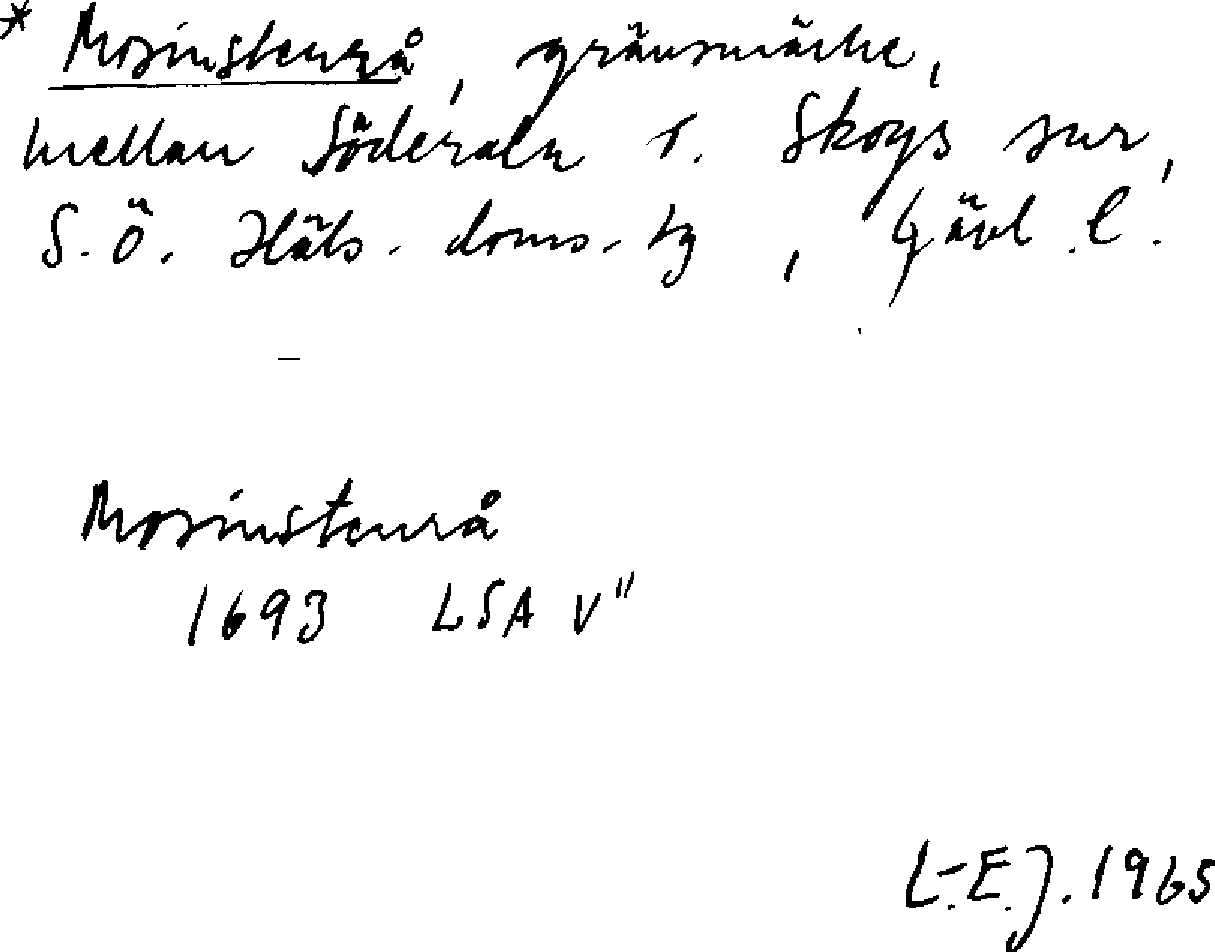 * Mosinstensrå, gränsmärke,
mellan Söderala o. Skogs snr,
S. Ö. Häls. doms. tg, Gävl. l.
Mosinstenrå
1693 LSA V"
L-E.J. 1965